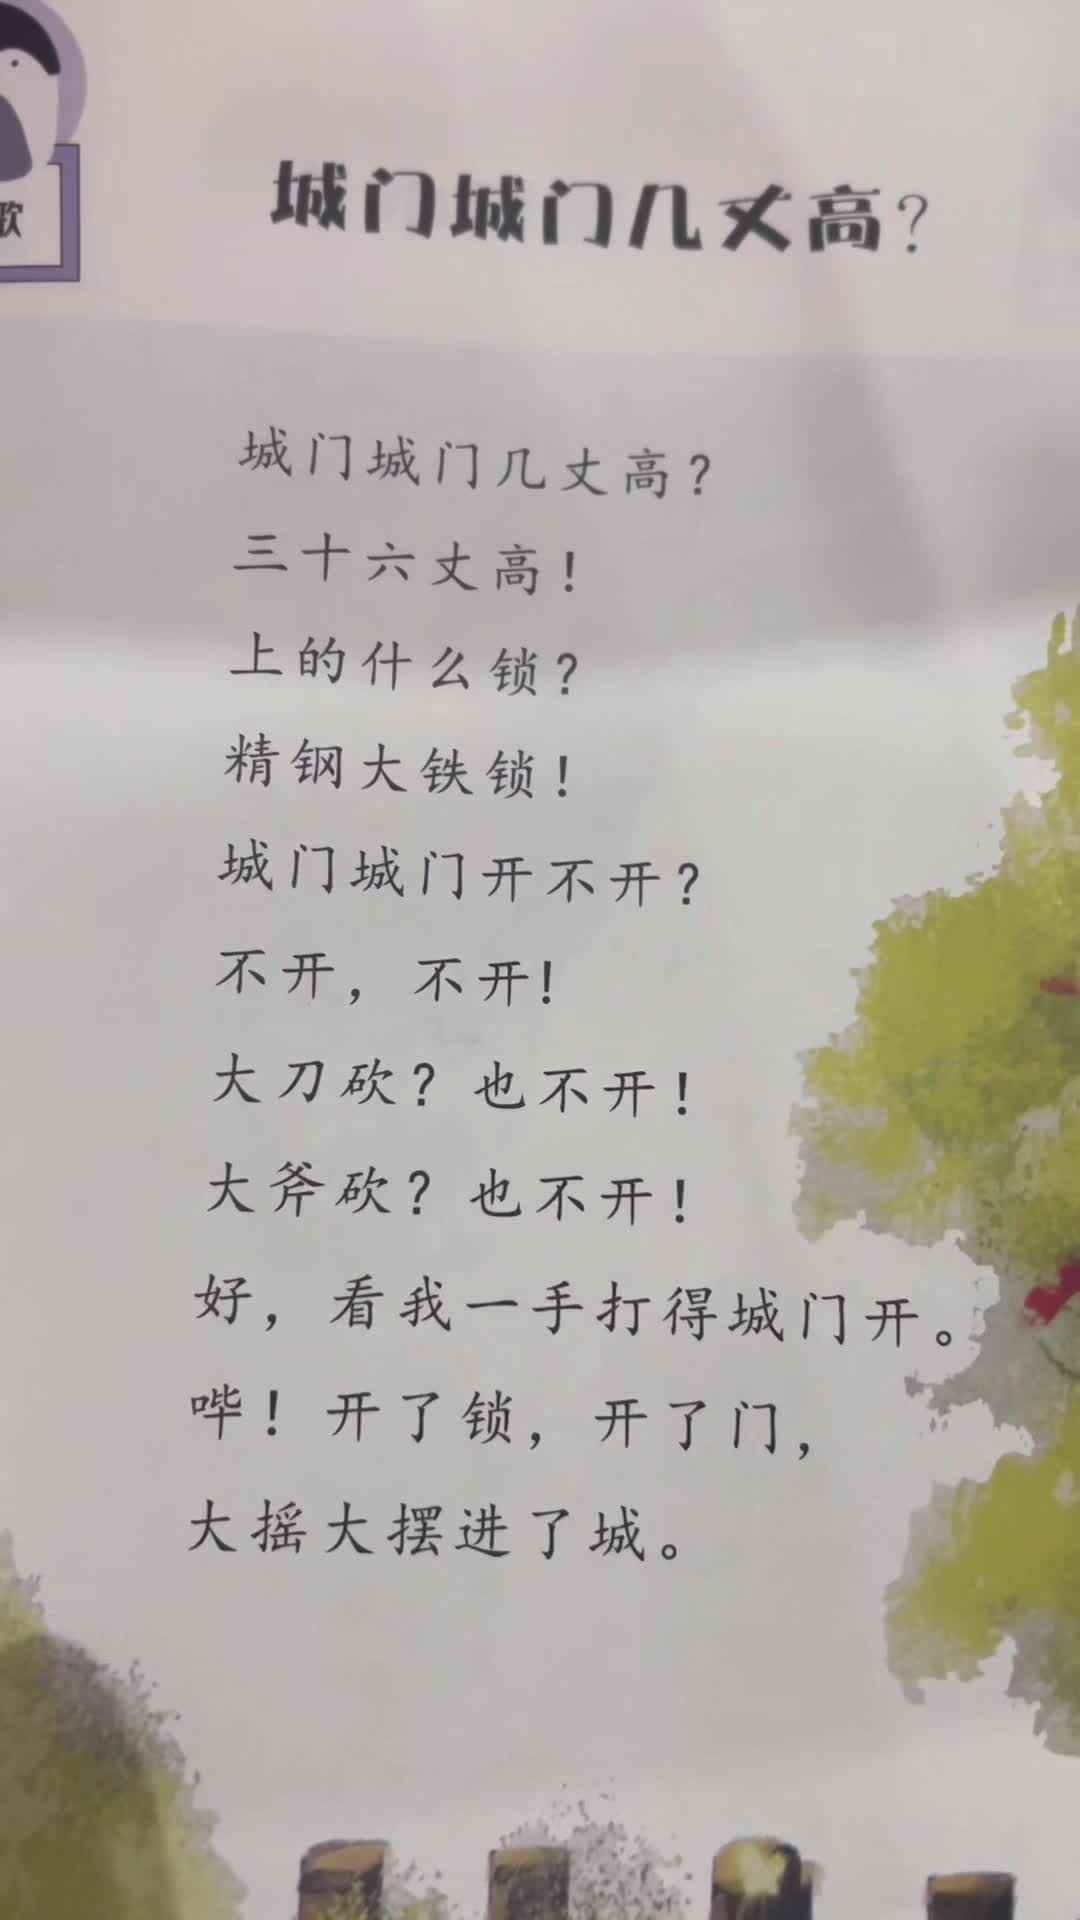 歌
城门城门几丈高？
城门城门几丈高？
三十六丈高！
上的什么锁？
精钢大铁锁！
城门城门开不开？
不开，不开！
大刀砍？也不开！
大斧砍？也不开！
好，看我一手打得城门开。
哔！开了锁，开了门，
大摇大摆进了城。